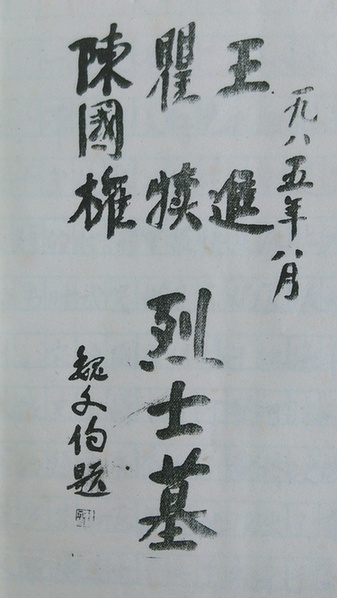 一九八五年八月
王進
瞿犊
陳國權
烈士墓
魏文伯題